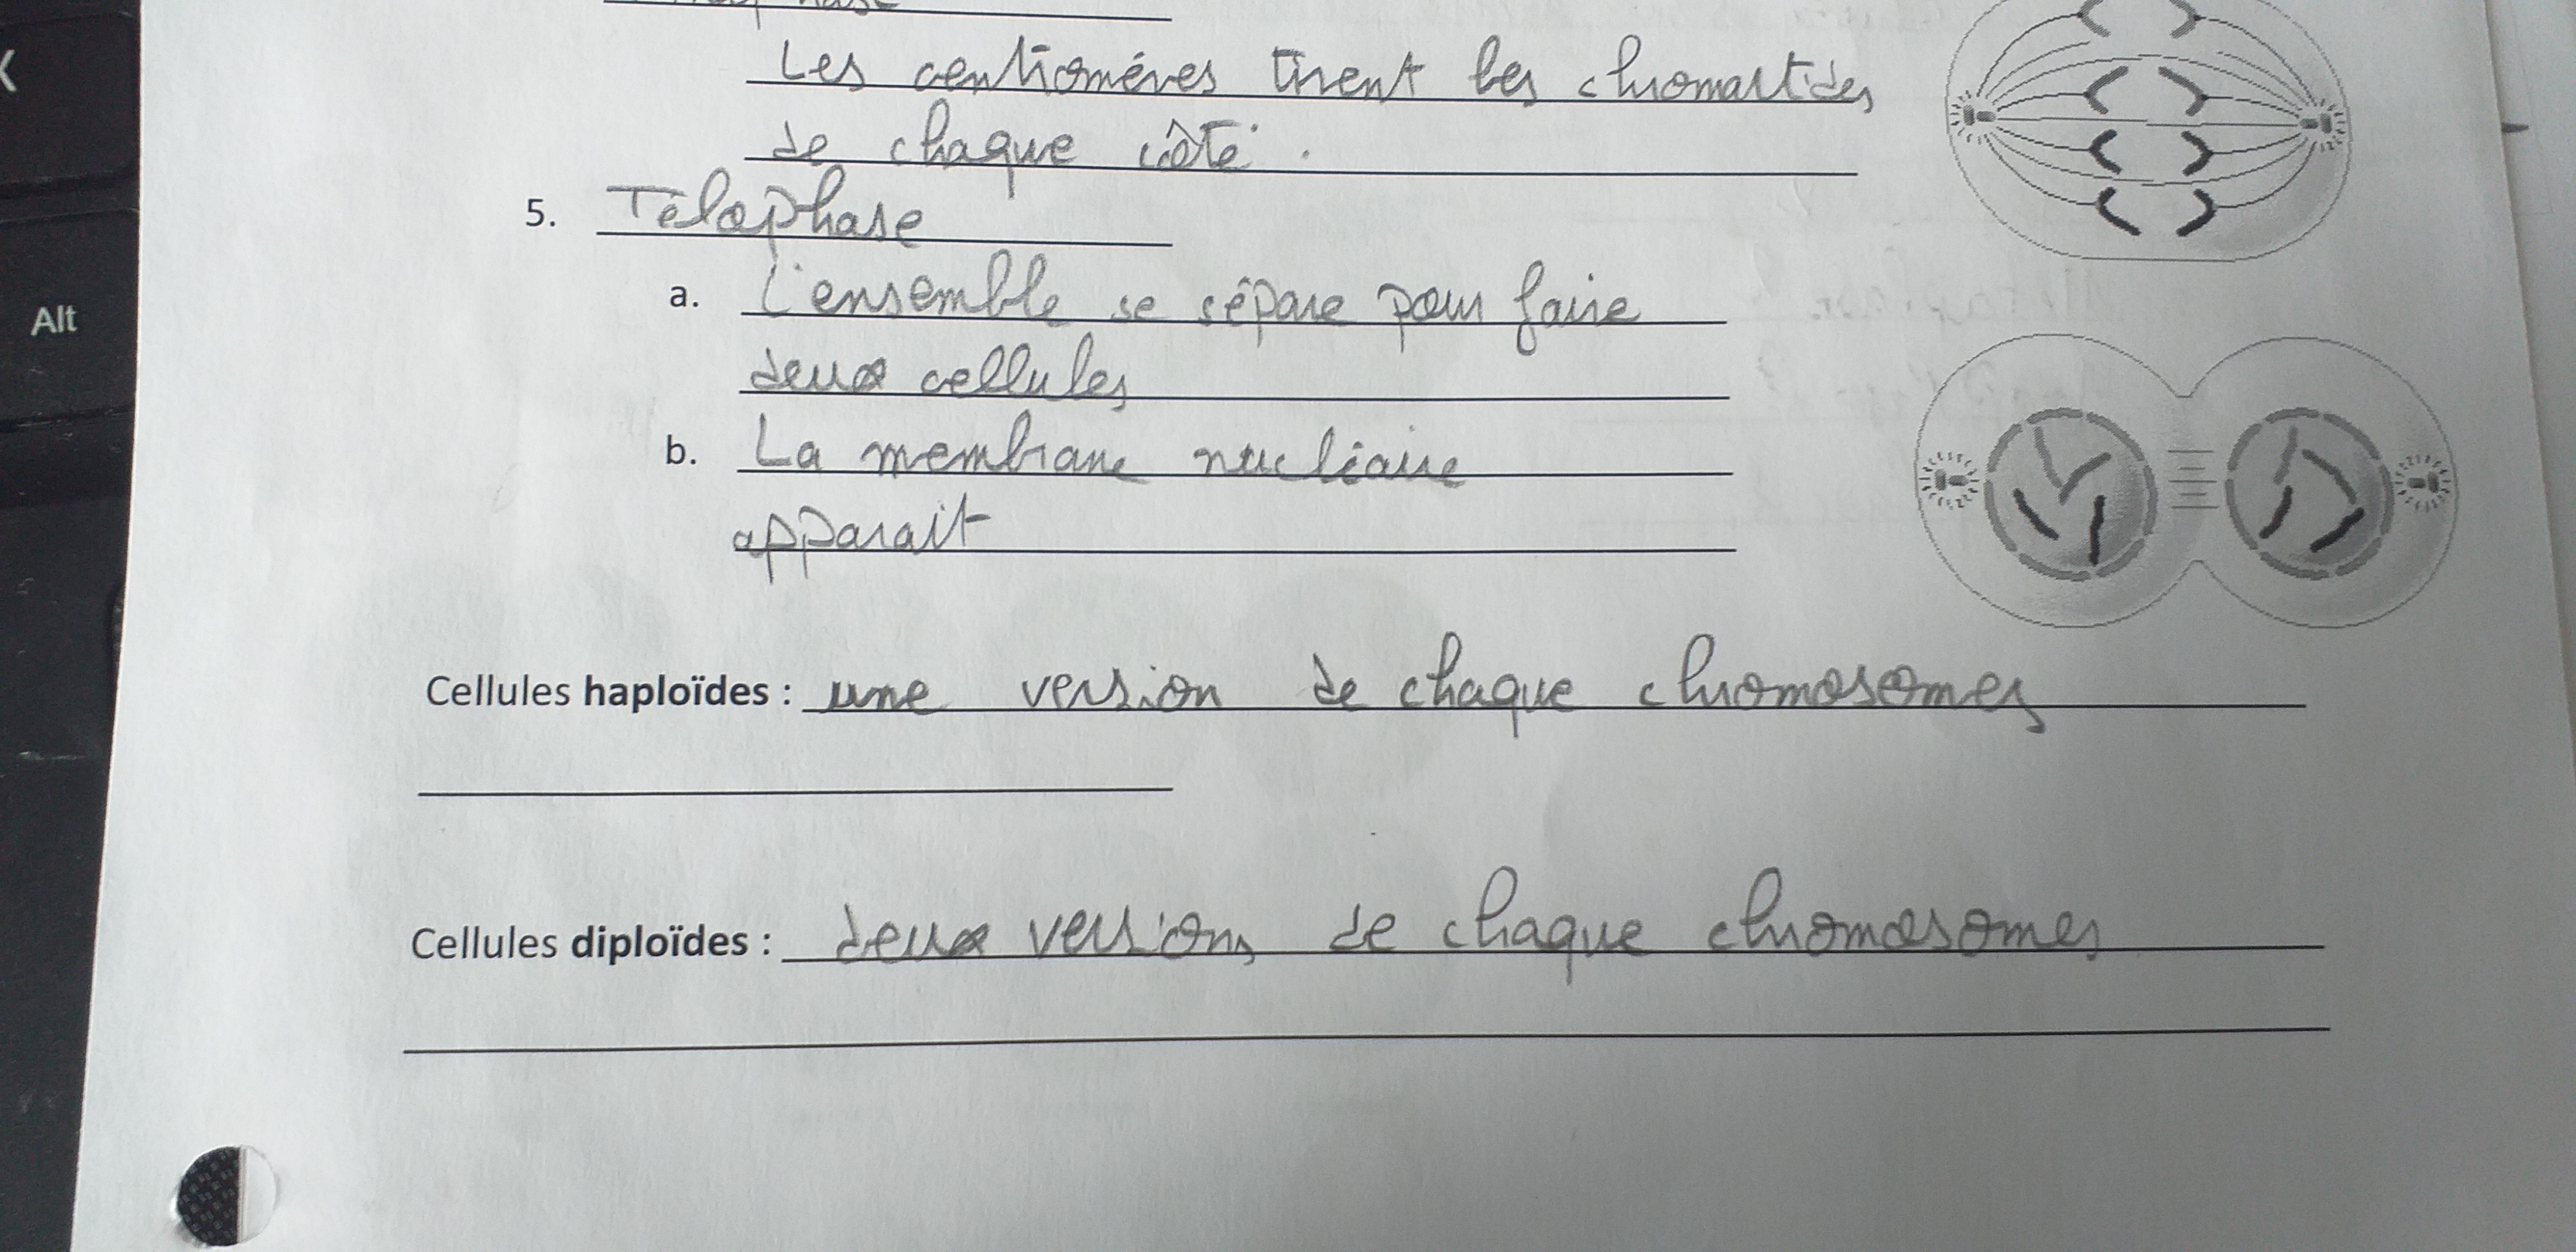 Les centromères tirent les chromartides
de chaque côté.
5. Télophase
a. L'ensemble se sépare pour faire
deux cellules
b. La membrane nucléaire
apparait
Cellules haploïdes : une version de chaque chromosomes
Cellules diploïdes : deux versions de chaque chromosomes
Alt